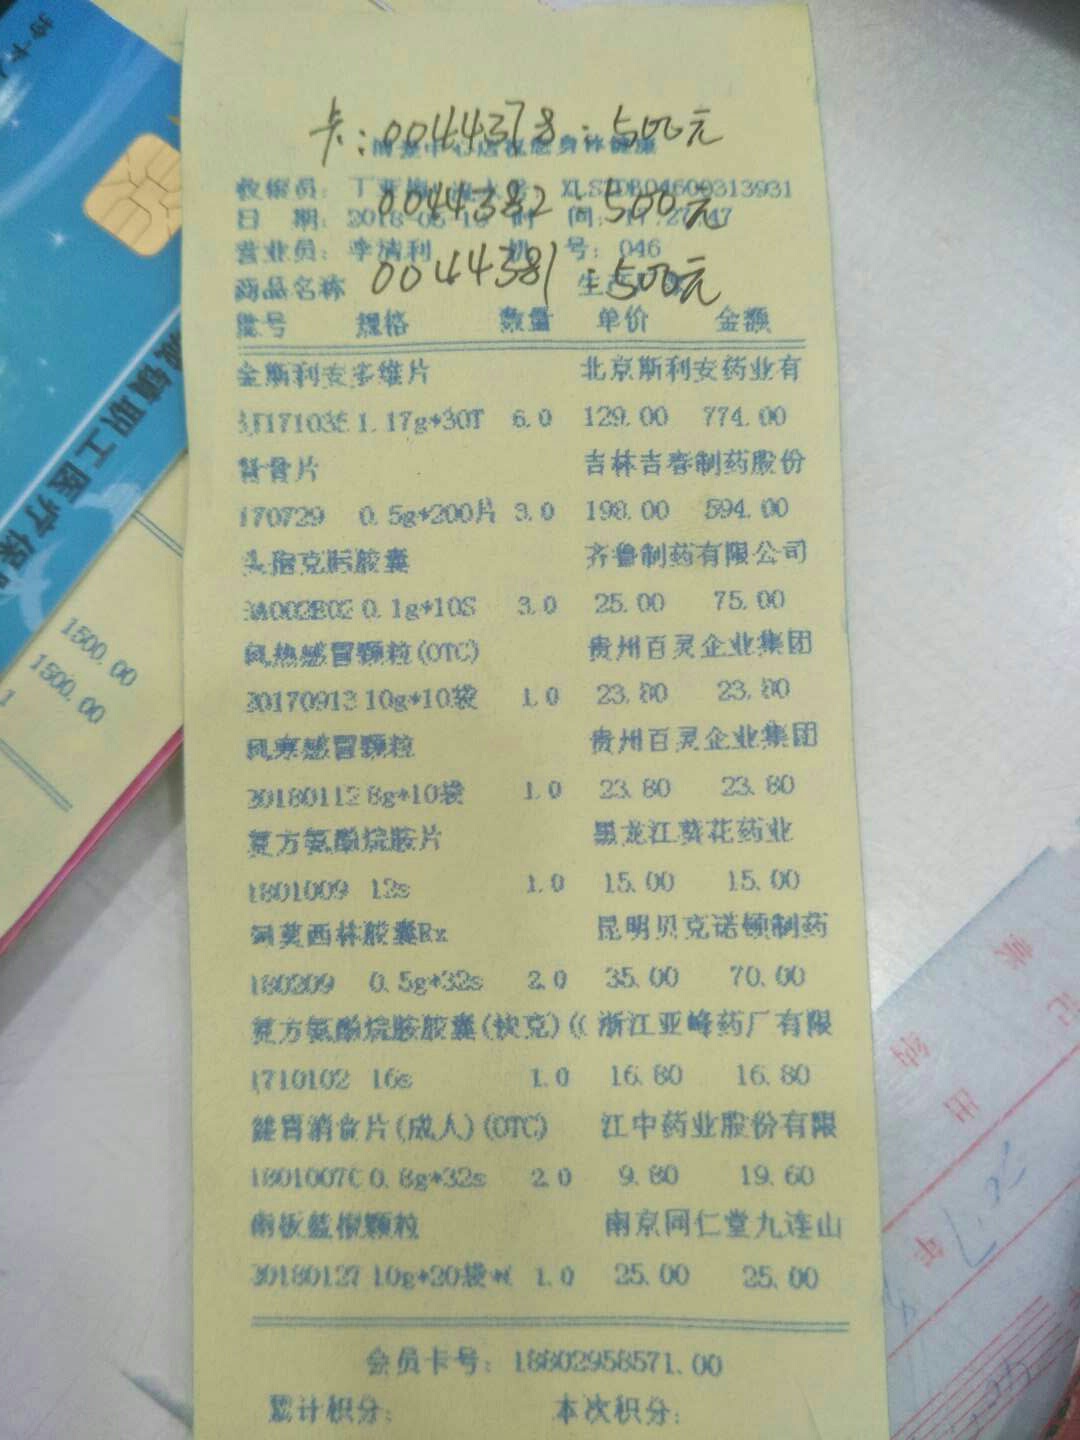 卡:0044378:500元
中心店祝您身体健康
收银员:丁 XLSZDB04609313931
0044382:500元
日 期:2018 时 间:17:27:47
营业员:李清利 机 号:046
0044381:500元
商品名称 生产
批号 规格 数量 单价 金额
金斯利安多维片 北京斯利安药业有
171035 1.17g*30T 6.0 129.00 774.00
骨片 吉林吉春制药股份
170729 0.5g*200片 3.0 198.00 594.00
头孢克肟胶囊 齐鲁制药有限公司
A002B02 0.1g*10S 3.0 25.00 75.00
风热感冒颗粒(OTC) 贵州百灵企业集团
20170913 10g*10袋 1.0 23.80 23.80
风寒感冒颗粒 贵州百灵企业集团
20180112 8g*10袋 1.0 23.80 23.80
复方氨酚烷胺片 黑龙江葵花药业
1801009 12s 1.0 15.00 15.00
阿莫西林胶囊Rx 昆明贝克诺顿制药
180209 0.5g*32s 2.0 35.00 70.00
复方氨酚烷胺胶囊(快克)(( 浙江亚峰药厂有限
1710102 16s 1.0 16.80 16.80
健胃消食片(成人)(OTC) 江中药业股份有限
1801007C 0.8g*32s 2.0 9.80 19.60
南板蓝根颗粒 南京同仁堂九连山
20180127 10g*20袋* 1.0 25.00 25.00
会员卡号:18802958571.00
累计积分: 本次积分:
城镇职工医疗保
1500.00
1500.00
1